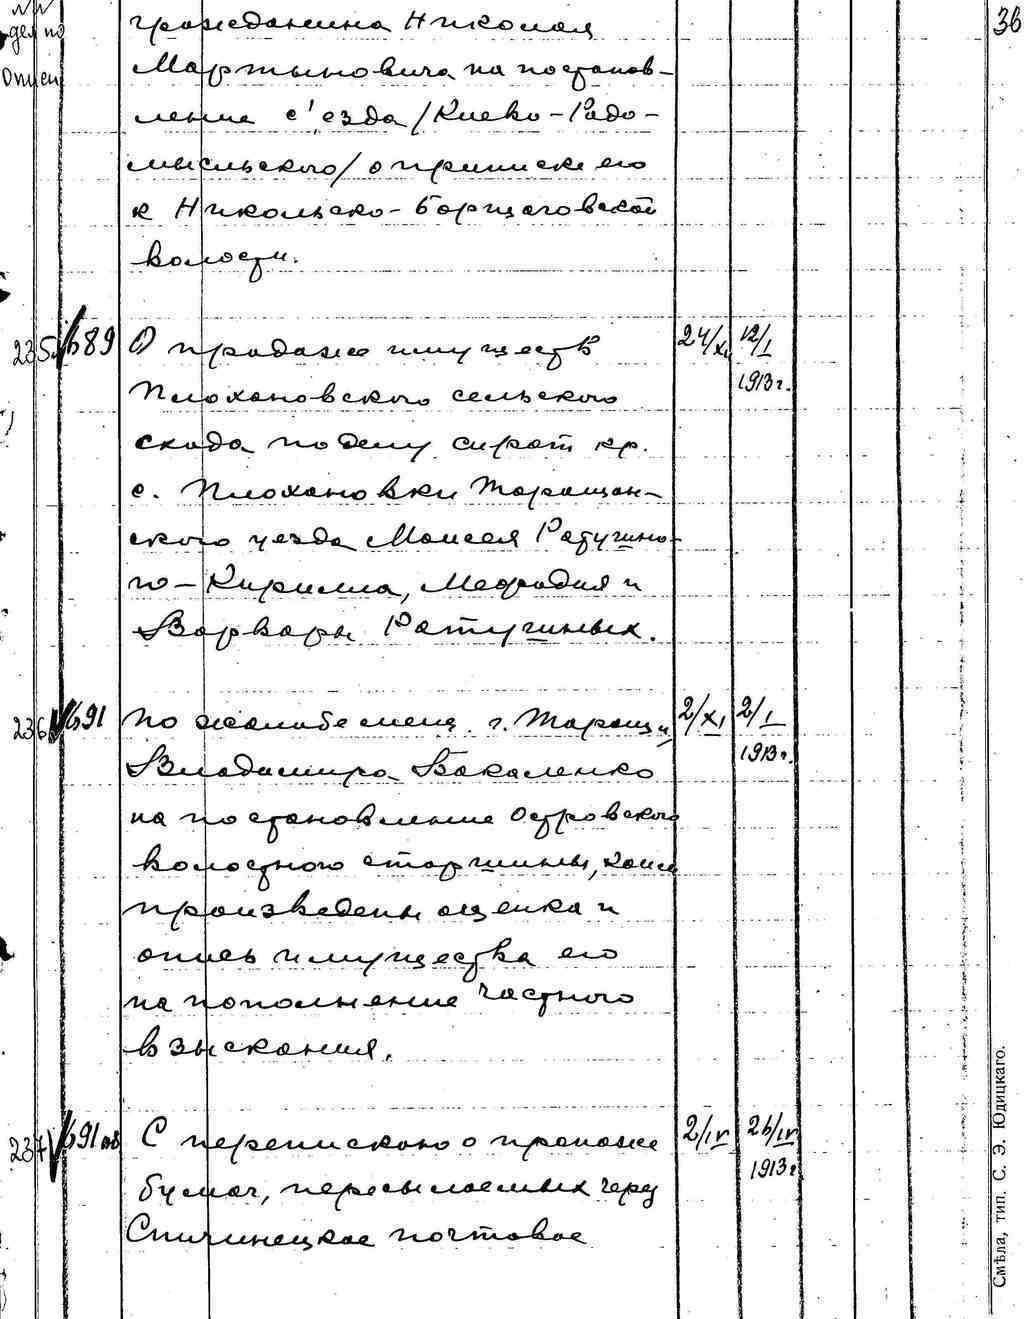 №№
дел по
Описи
36
гражданина Николая
Мартыновича на постанов-
ление с'езда /Киево-Радо-
мысльского/ о приписке его
к Никольско-Борщаговской
волости.
235 689 О продаже имуществ 24/XI 12/I 1913 г.
Плохановского сельского
схода по делу сирот кр.
с. Плохановки Таращан-
ского уезда Моисея Ратушно-
го - Кирилла, Мефодия и
Варвары Ратушных.
236 691 По жалобе мещ. г. Таращи 2/XI 2/I 1913 г.
Владимира Бакаленко
на постановление Островского
волостного старшины, коим
произведены оценка и
опись имущества его
на пополнение частного
взыскания.
237 691 С перепискою о пропаже 2/IV 26/IV 1913 г
бумаг, пересылаемых через
Спичинецкое почтовое
Смѣла, тип. С. Э. Юдицкаго.